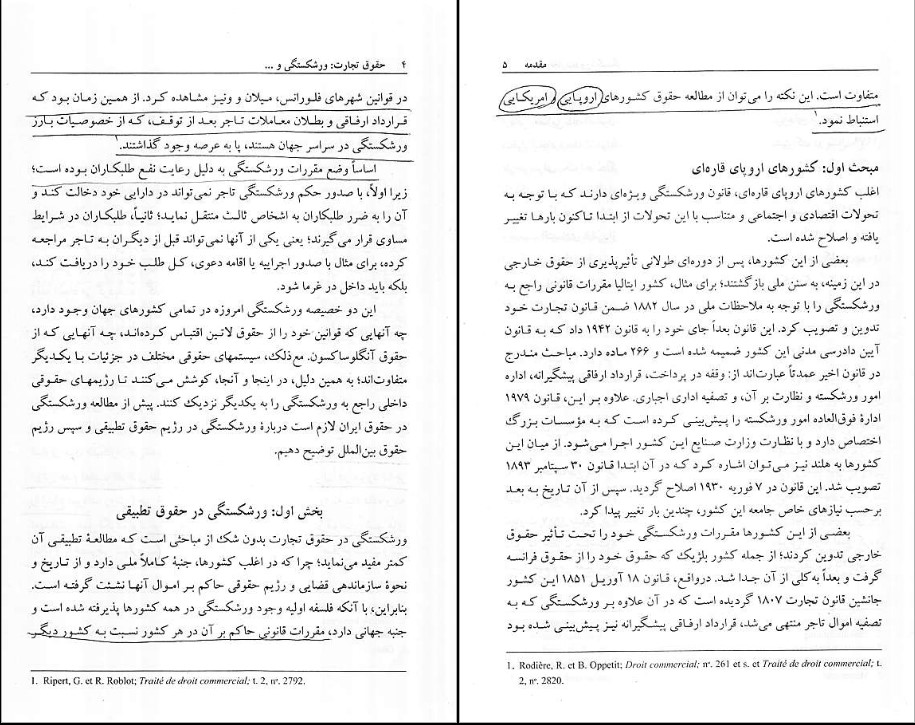 ۴   حقوق تجارت: ورشکستگی و ...
در قوانین شهرهای فلورانس، میلان و ونیز مشاهده کرد. از همین زمان بود که
قرارداد ارفاقی و بطلان معاملات تاجر بعد از توقف، که از خصوصیات بارز
ورشکستگی در سراسر جهان هستند، پا به عرصه وجود گذاشتند.¹
اساساً وضع مقررات ورشکستگی به دلیل رعایت نفع طلبکاران بوده است؛
زیرا اولاً، با صدور حکم ورشکستگی تاجر نمی‌تواند در دارایی خود دخالت کند و
آن را به ضرر طلبکاران به اشخاص ثالث منتقل نماید؛ ثانیاً، طلبکاران در شرایط
مساوی قرار می‌گیرند؛ یعنی یکی از آنها نمی‌تواند قبل از دیگران به تاجر مراجعه
کرده، برای مثال با صدور اجراییه یا اقامه دعوی، کل طلب خود را دریافت کند،
بلکه باید داخل در غرما شود.
این دو خصیصه ورشکستگی امروزه در تمامی کشورهای جهان وجود دارد،
چه آنهایی که قوانین خود را از حقوق لاتین اقتباس کرده‌اند، چه آنهایی که از
حقوق آنگلوساکسون. مع‌ذلک، سیستمهای حقوقی مختلف در جزئیات با یکدیگر
متفاوت‌اند؛ به همین دلیل، در اینجا و آنجا، کوشش می‌کنند تا رژیمهای حقوقی
داخلی راجع به ورشکستگی را به یکدیگر نزدیک کنند. پیش از مطالعه ورشکستگی
در حقوق ایران لازم است دربارۀ ورشکستگی در رژیم حقوق تطبیقی و سپس رژیم
حقوق بین‌الملل توضیح دهیم.
بخش اول: ورشکستگی در حقوق تطبیقی
ورشکستگی در حقوق تجارت بدون شک از مباحثی است که مطالعۀ تطبیقی آن
کمتر مفید می‌نماید؛ چرا که در اغلب کشورها، جنبۀ کاملاً ملی دارد و از تاریخ و
نحوۀ سازماندهی قضایی و رژیم حقوقی حاکم بر اموال آنها نشئت گرفته است.
بنابراین، با آنکه فلسفه اولیه وجود ورشکستگی در همه کشورها پذیرفته شده است و
جنبه جهانی دارد، مقررات قانونی حاکم بر آن در هر کشور نسبت به کشور دیگر
1. Ripert, G. et R. Roblot; Traité de droit commercial; t. 2, nº. 2792.
مقدمه   ۵
متفاوت است. این نکته را می‌توان از مطالعه حقوق کشورهای اروپایی و امریکایی
استنباط نمود.¹
مبحث اول: کشورهای اروپای قاره‌ای
اغلب کشورهای اروپای قاره‌ای، قانون ورشکستگی ویژه‌ای دارند که با توجه به
تحولات اقتصادی و اجتماعی و متناسب با این تحولات از ابتدا تاکنون بارها تغییر
یافته و اصلاح شده است.
بعضی از این کشورها، پس از دوره‌ای طولانی تأثیرپذیری از حقوق خارجی
در این زمینه، به سنن ملی بازگشتند؛ برای مثال، کشور ایتالیا مقررات قانونی راجع به
ورشکستگی را با توجه به ملاحظات ملی در سال ۱۸۸۲ ضمن قانون تجارت خود
تدوین و تصویب کرد. این قانون بعداً جای خود را به قانون ۱۹۴۲ داد که به قانون
آیین دادرسی مدنی این کشور ضمیمه شده است و ۲۶۶ ماده دارد. مباحث مندرج
در قانون اخیر عمدتاً عبارت‌اند از: وقفه در پرداخت، قرارداد ارفاقی پیشگیرانه، اداره
امور ورشکسته و نظارت بر آن، و تصفیه اداری اجباری. علاوه بر این، قانون ۱۹۷۹
ادارۀ فوق‌العاده امور ورشکسته را پیش‌بینی کرده است که به مؤسسات بزرگ
اختصاص دارد و با نظارت وزارت صنایع این کشور اجرا می‌شود. از میان این
کشورها به هلند نیز می‌توان اشاره کرد که در آن ابتدا قانون ۳۰ سپتامبر ۱۸۹۳
تصویب شد. این قانون در ۷ فوریه ۱۹۳۰ اصلاح گردید. سپس از آن تاریخ به بعد
برحسب نیازهای خاص جامعه این کشور، چندین بار تغییر پیدا کرد.
بعضی از این کشورها مقررات ورشکستگی خود را تحت تأثیر حقوق
خارجی تدوین کردند؛ از جمله کشور بلژیک که حقوق خود را از حقوق فرانسه
گرفت و بعداً به‌کلی از آن جدا شد. درواقع، قانون ۱۸ آوریل ۱۸۵۱ این کشور
جانشین قانون تجارت ۱۸۰۷ گردیده است که در آن علاوه بر ورشکستگی که به
تصفیه اموال تاجر منتهی می‌شد، قرارداد ارفاقی پیشگیرانه نیز پیش‌بینی شده بود
1. Rodière, R. et B. Oppetit; Droit commercial; nº. 261 et s. et Traité de droit commercial; t.
2, nº. 2820.